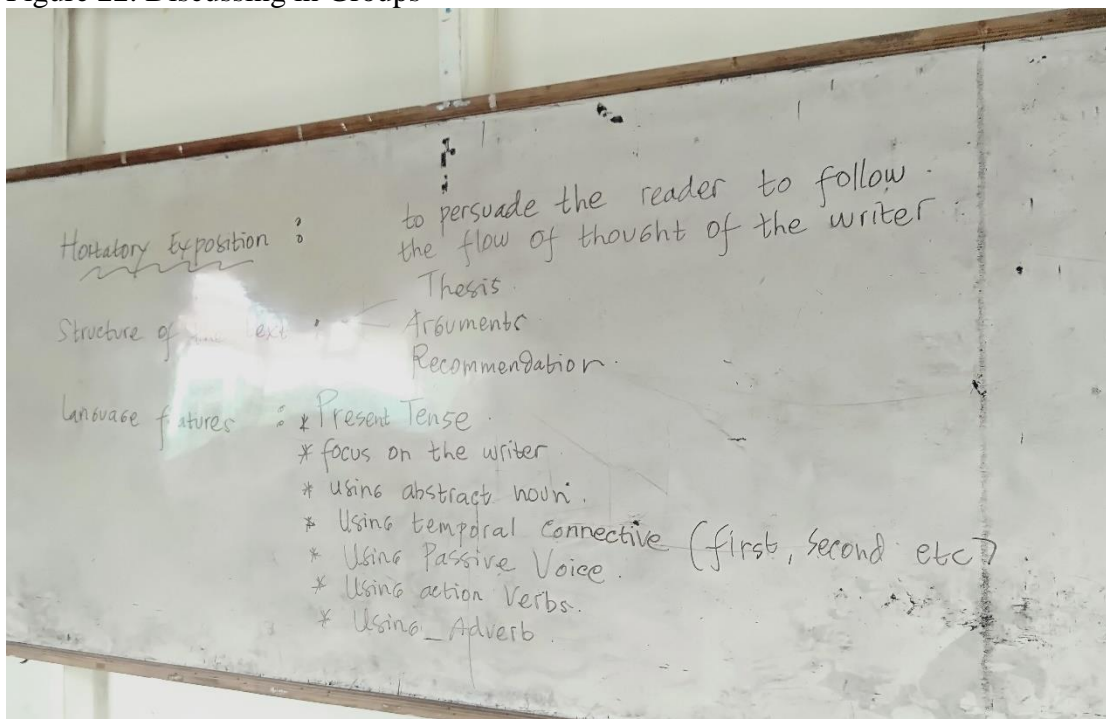 Figure 22: Discussing in Groups
Hortatory Exposition : to persuade the reader to follow
the flow of thought of the writer
Thesis
Structure of text : Arguments
Recommendation.
Language features : * Present Tense.
* focus on the writer
* Using abstract noun.
* Using temporal connective (first, second etc)
* Using Passive Voice.
* Using action Verbs.
* Using Adverb.